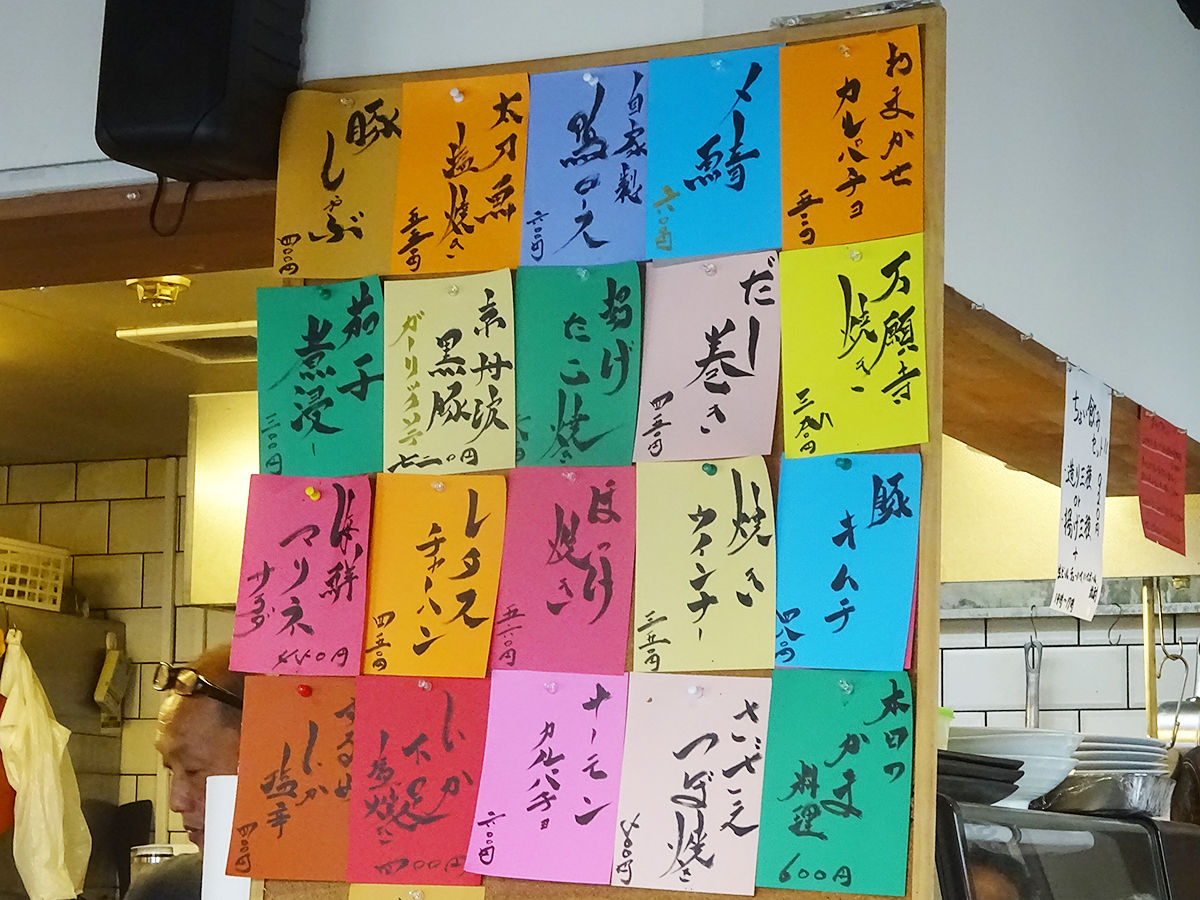 おまかせ
カルパチョ
〆鯖
六〇〇円
自家製
鴨ロース
六〇〇円
太刀魚
塩焼き
五五〇円
豚
しゃぶ
四〇〇円
万願寺
焼き
だし
巻き
四五〇円
揚げ
たこ焼き
京丹波
黒豚
七二〇円
茄子
煮浸し
三〇〇円
豚
キムチ
四八〇円
焼き
ウインナー
三五〇円
ほっけ
焼き
五六〇円
レタス
チャーハン
四五〇円
海鮮
マリネ
サラダ
本日の
かま
料理
600円
さざえ
つぼ焼き
サーモン
カルパチョ
六〇〇円
いか
下足
塩焼き
四〇〇円
するめ
いか
塩辛
四〇〇円
ちょい飲み
セット
造り三種
or
揚げ三種
+